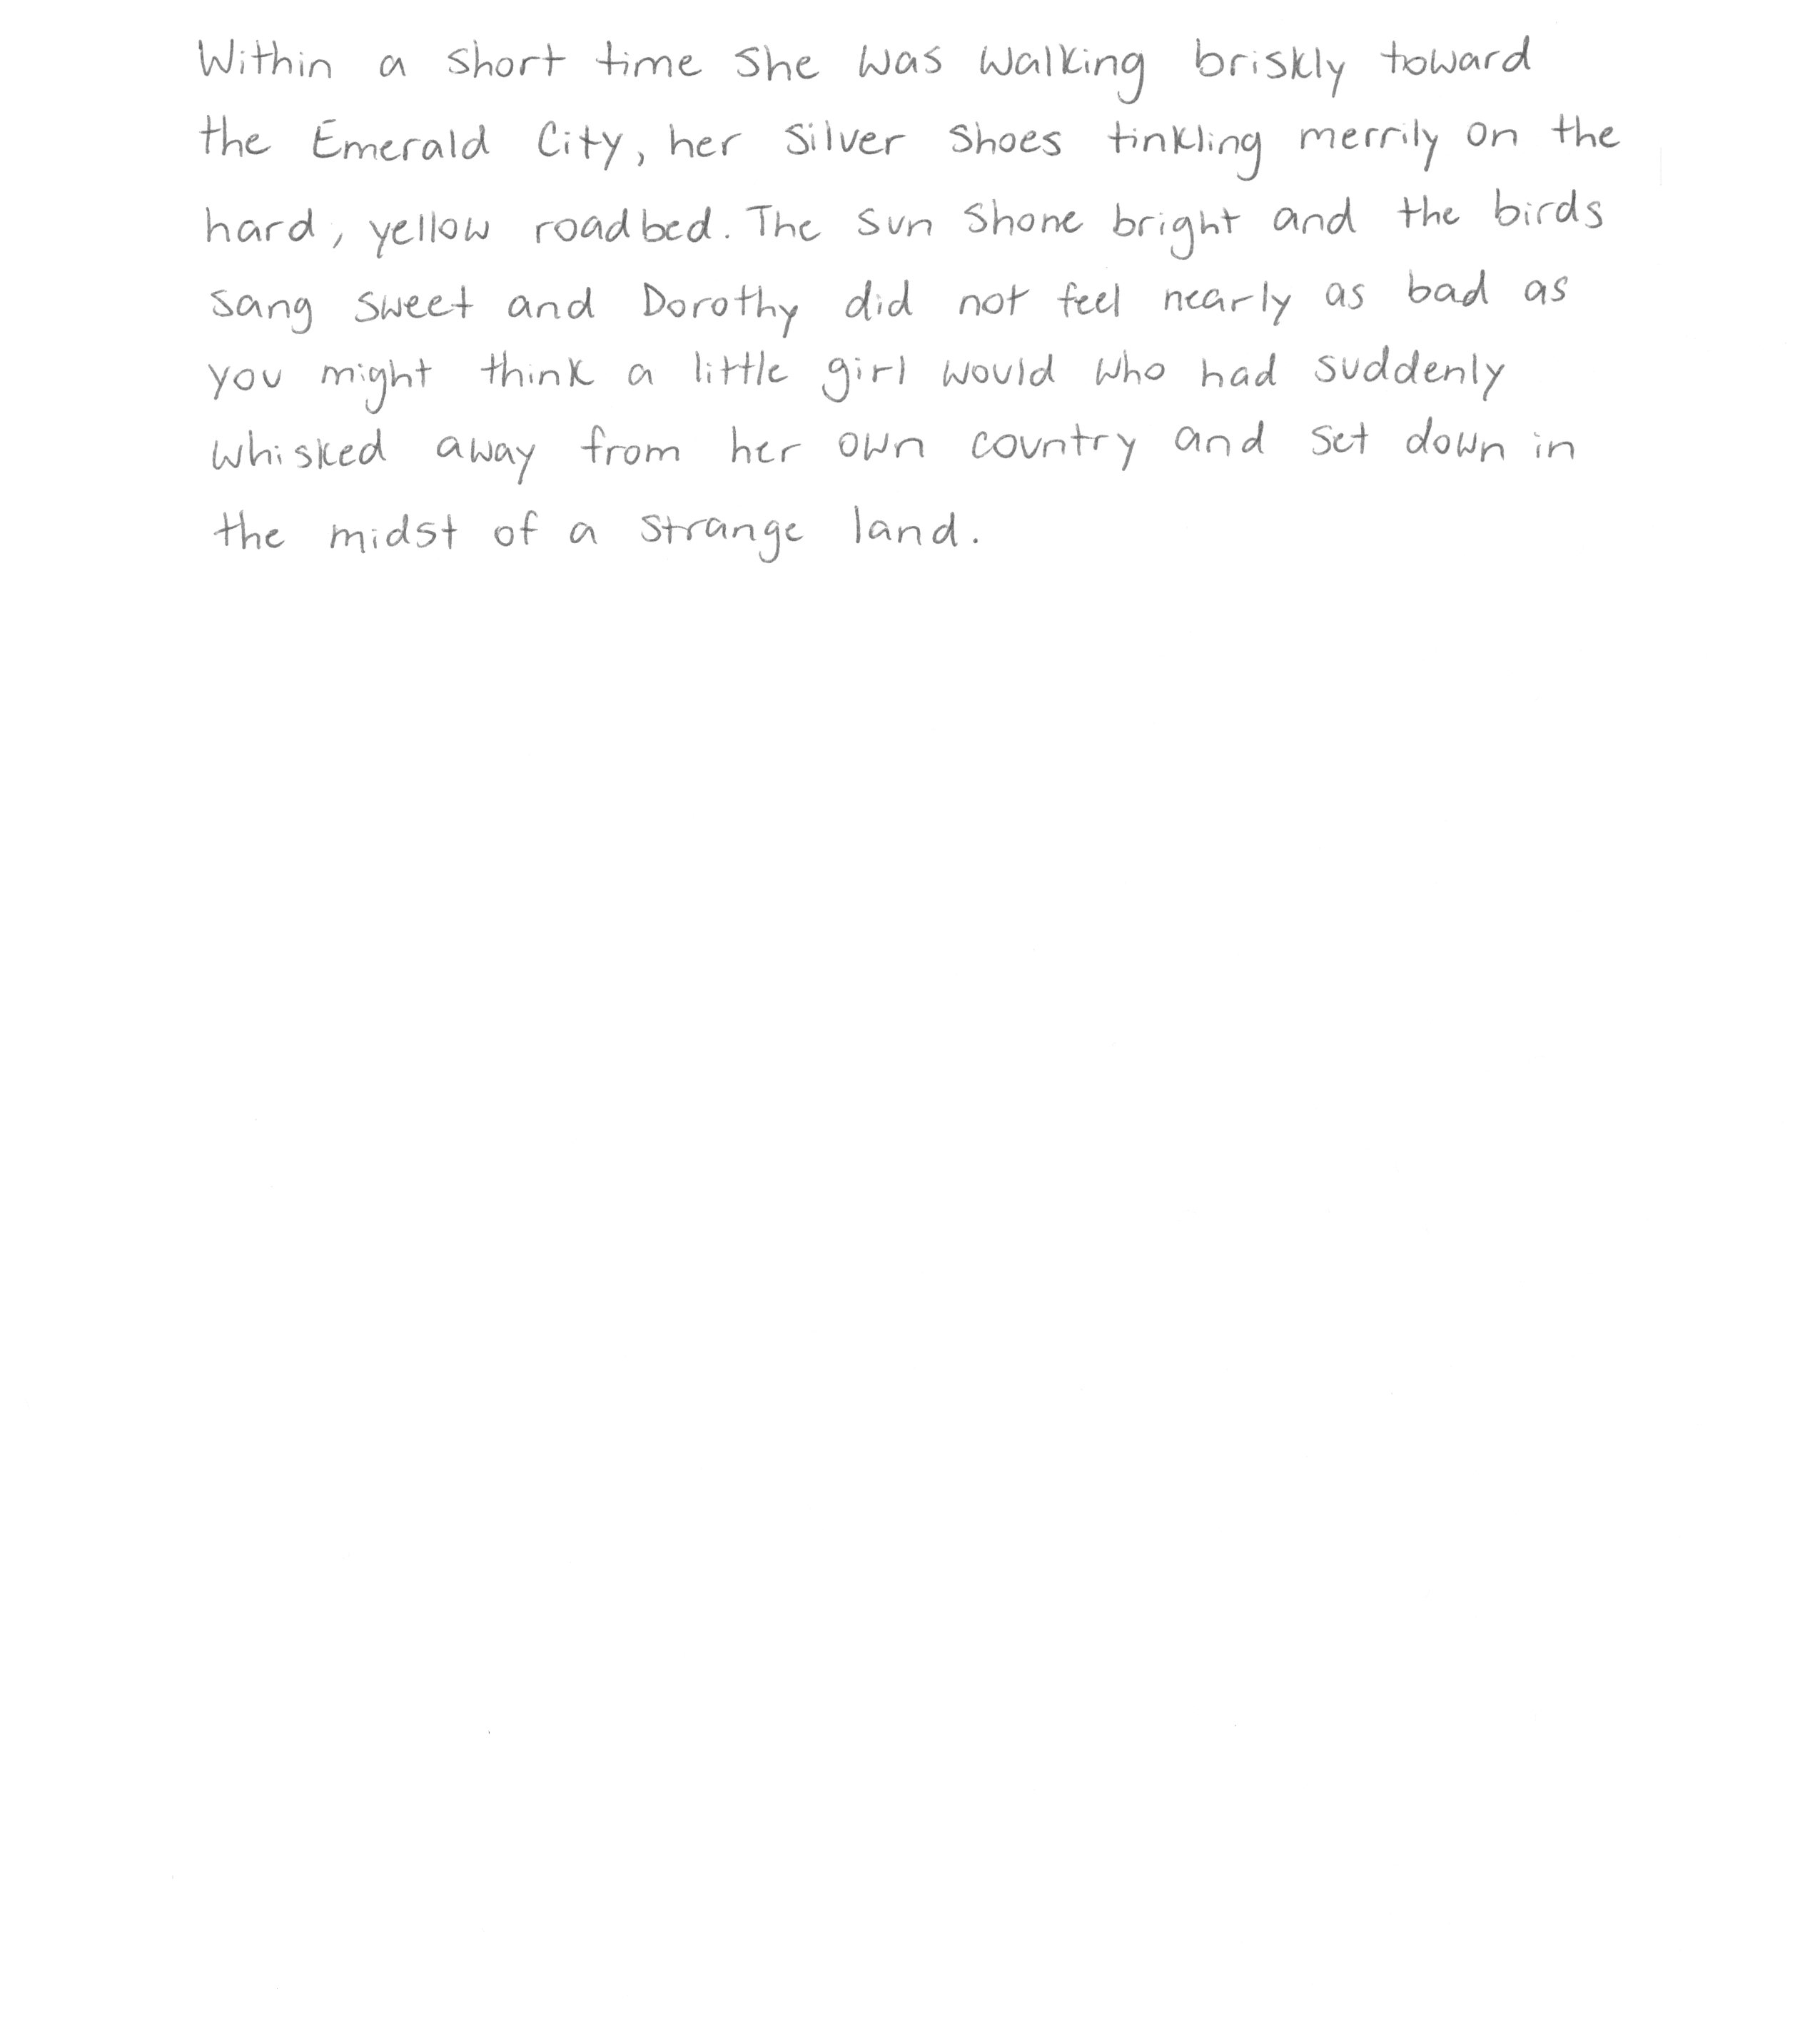 Within a short time she was walking briskly toward
the Emerald City, her silver shoes tinkling merrily on the
hard, yellow roadbed. The sun shone bright and the birds
sang sweet and Dorothy did not feel nearly as bad as
you might think a little girl would who had suddenly
whisked away from her own country and set down in
the midst of a strange land.